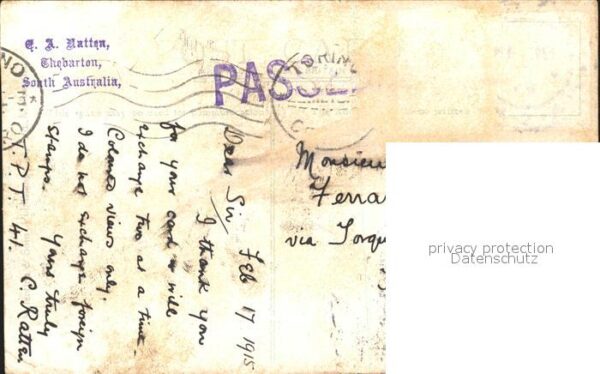 C. A. Ratten,
Thebarton,
South Australia,
PASSED
TORINO
Feb 17 1915
Dear Sir/
I thank you
for your card & will
exchange two at a time.
Coloured views only.
I do not exchange foreign
stamps. Yours truly
C. Ratten
T.P.T. 41.
Monsieur
Ferra
via Torqu
privacy protection
Datenschutz